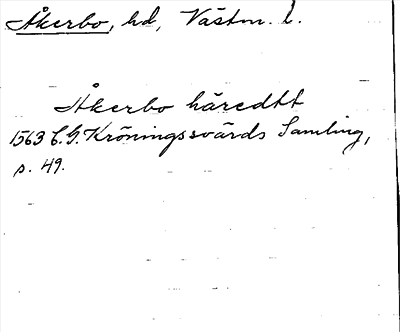 Åkerbo, hd, Västm. l.
Åkerbo häredtt
1563 C.G. Kröningssvärds Samling,
p. 49.